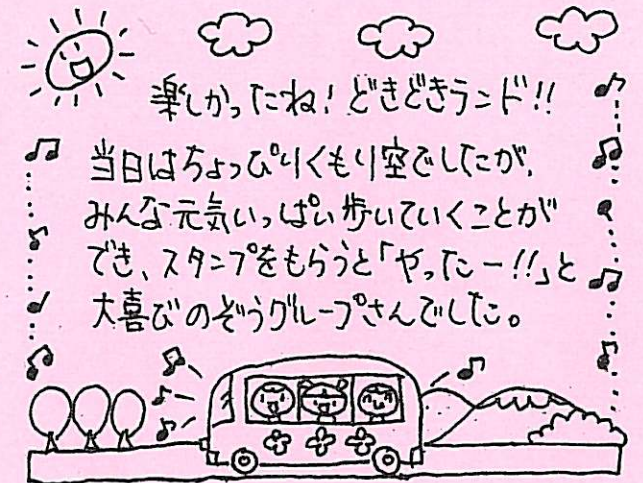 楽しかったね！どきどきランド!!
当日はちょっぴりくもり空でしたが、
みんな元気いっぱい歩いていくことが
でき、スタンプをもらうと「やったー!!」と
大喜びのぞうグループさんでした。